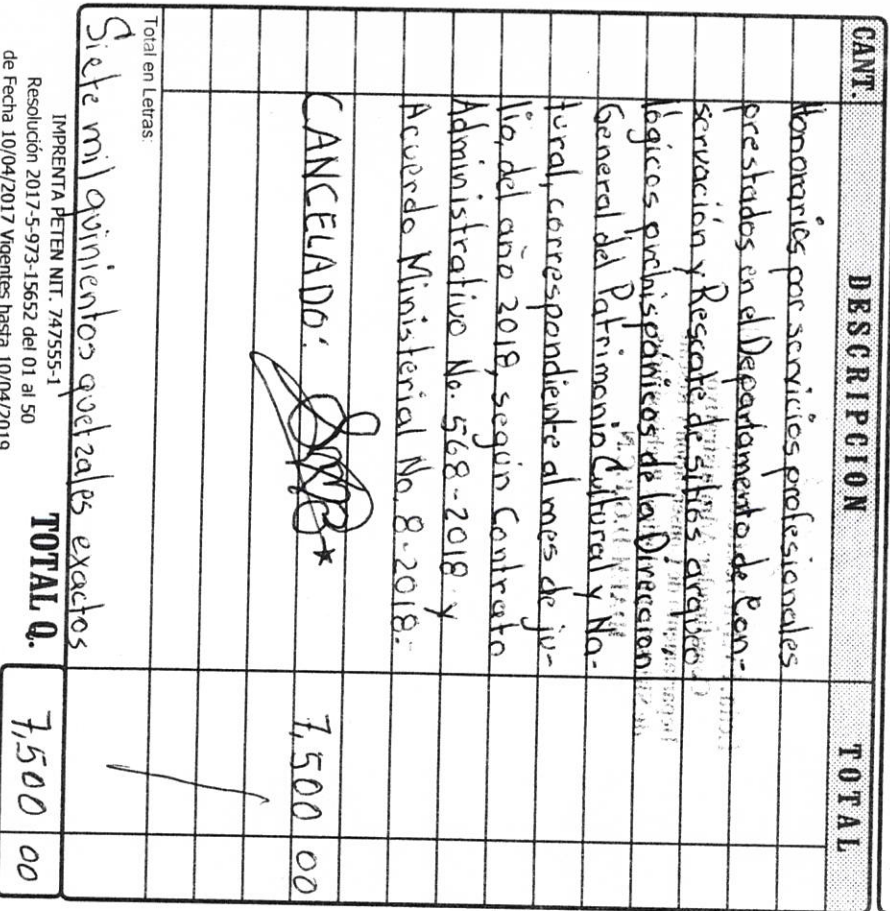 CANT. DESCRIPCION TOTAL
Honorarios por servicios profesionales
prestados en el Departamento de Con-
servación y Rescate de sitios arqueo-
lógicos prehispánicos de la Direccion
General del Patrimonio Cultural y Na-
tural, correspondiente al mes de ju-
lio, del año 2018, según Contrato
Administrativo No. 568-2018 y
Acuerdo Ministerial No. 8-2018.
CANCELADO: 7,500 00
Total en Letras:
Siete mil quinientos quetzales exactos
IMPRENTA PETEN NIT. 747555-1
Resolución 2017-5-973-15652 del 01 al 50
de Fecha 10/04/2017 Vigentes hasta 10/04/2019
TOTAL Q. 7,500 00